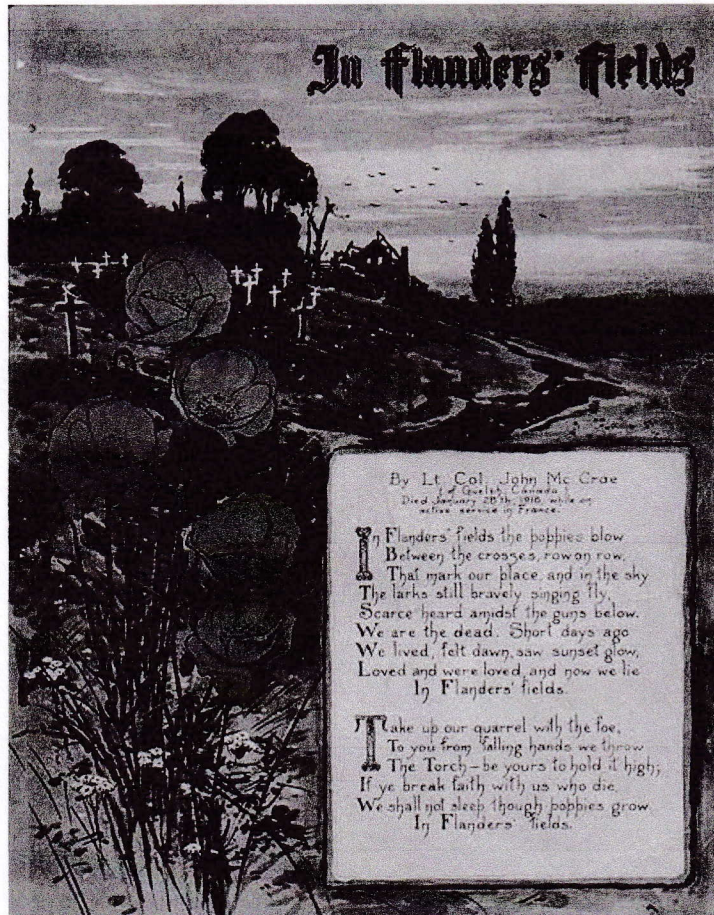 In Flanders' Fields
By Lt. Col. John Mc Crae
( of Guelph, Canada )
Died January 28th, 1918, while on
active service in France.
In Flanders' fields the poppies blow
Between the crosses, row on row,
That mark our place, and in the sky
The larks still bravely singing fly,
Scarce heard amidst the guns below.
We are the dead. Short days ago
We lived, felt dawn, saw sunset glow,
Loved and were loved, and now we lie
In Flanders' fields.
Take up our quarrel with the foe,
To you from falling hands we throw
The Torch – be yours to hold it high;
If ye break faith with us who die,
We shall not sleep though poppies grow
In Flanders' fields.